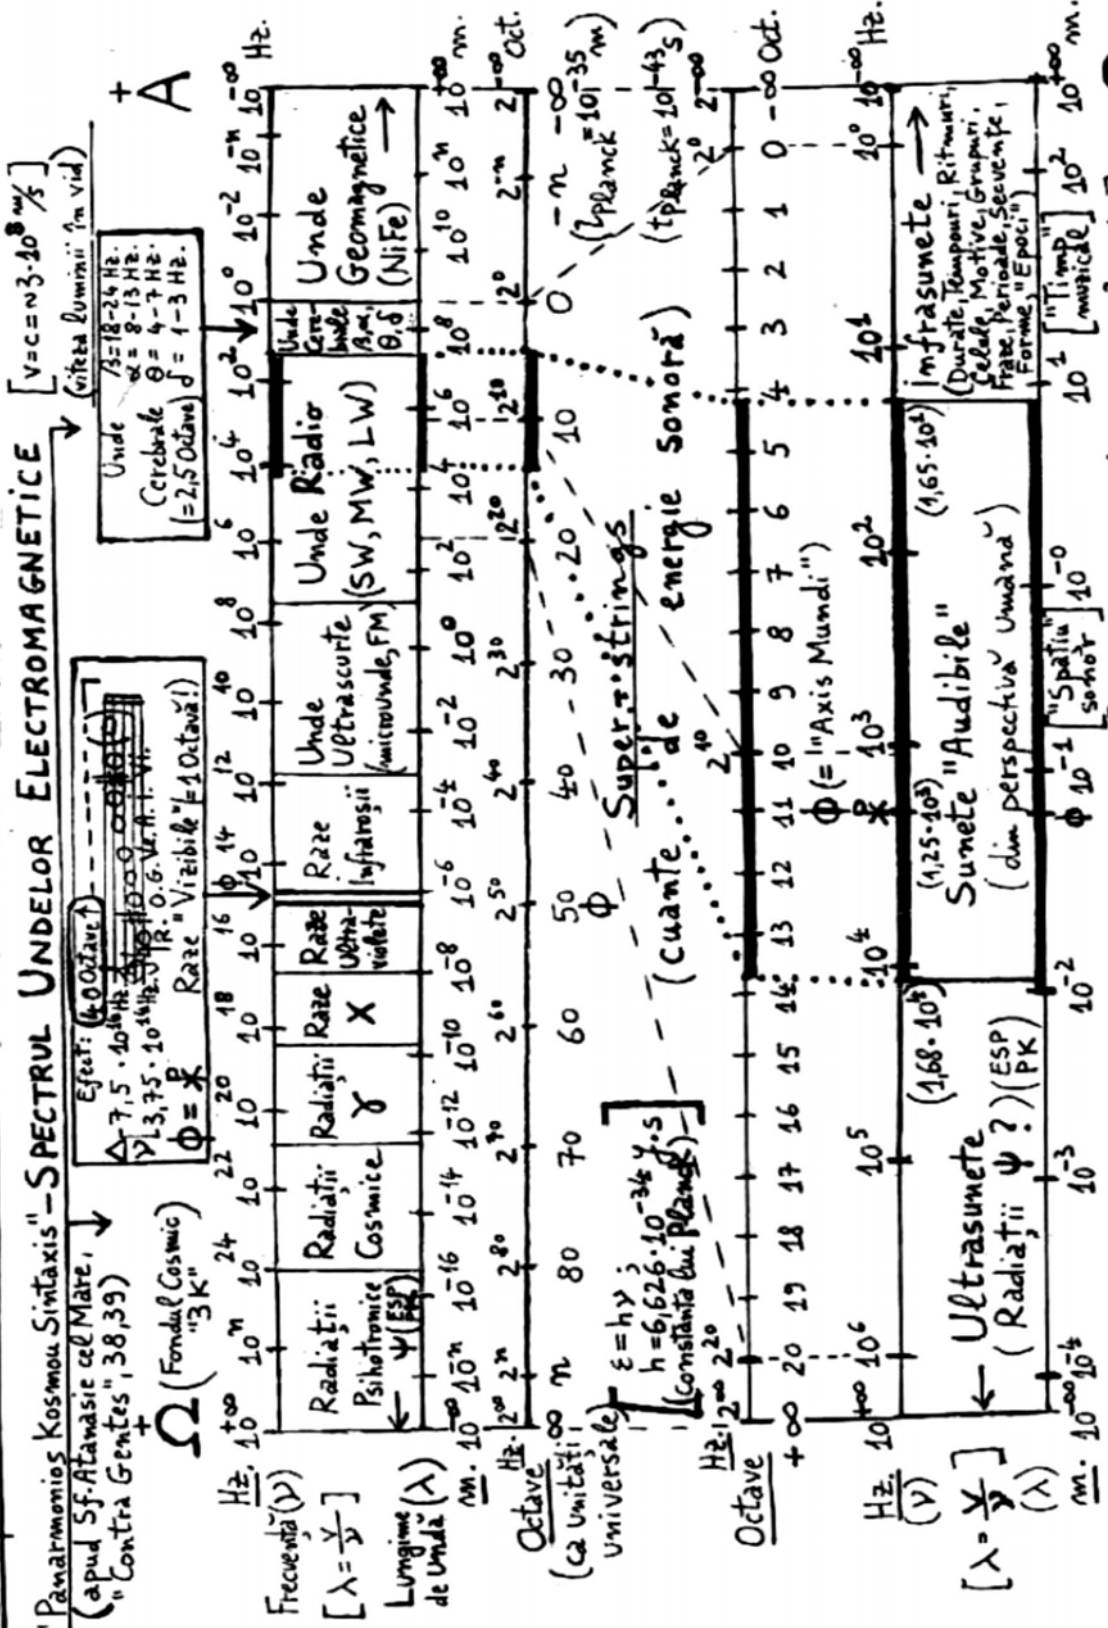 "Panarmonios Kosmou Sintaxis" – SPECTRUL UNDELOR ELECTROMAGNETICE
(apud Sf. Atanasie cel Mare,
"Contra Gentes", 38,39)
[v=c=~3·10⁸ m/s]
(viteza luminii în vid)
+
Ω (Fondul Cosmic "3K")
Efect: (40 Octave↑)
Δν
7,5·10¹⁴ Hz.
3,75·10¹⁴ Hz.
R. O. G. Ve. A. I. Vi.
Φ = 
Raze "Vizibile" (=1 Octavă!)
Unde Cerebrale (=2,5 Octave)
β=18-24 Hz.
α= 8-13 Hz.
θ= 4-7 Hz.
δ= 1-3 Hz.
+
A
Hz. 10⁺∞ 10ⁿ 10²⁴ 10²² 10²⁰ 10¹⁸ 10¹⁶ Φ 10¹⁴ 10¹² 10¹⁰ 10⁸ 10⁶ 10⁴ 10² 10⁰ 10⁻² 10⁻ⁿ 10⁻∞ Hz.
Frecvență (ν)
[λ = v/ν]
Lungime de Undă (λ)
Radiații Psihotronice
← Ψ (ESP PK)
Radiații Cosmice
Radiații γ
Raze X
Raze Ultraviolete
Raze Infraroșii
Unde Ultrascurte
(microunde, FM)
Unde Radio
(SW, MW, LW)
Unde Cerebrale
β, α, θ, δ
Unde Geomagnetice
(NiFe) →
m. 10⁻∞ 10⁻ⁿ 10⁻¹⁶ 10⁻¹⁴ 10⁻¹² 10⁻¹⁰ 10⁻⁸ 10⁻⁶ 10⁻⁴ 10⁻² 10⁰ 10² 10⁴ 10⁶ 10⁸ 10¹⁰ 10ⁿ 10⁺∞ m.
Hz. 2∞ 2ⁿ 2⁸⁰ 2⁷⁰ 2⁶⁰ 2⁵⁰ 2⁴⁰ 2³⁰ 2²⁰ 2¹⁰ 2⁰ 2⁻ⁿ 2⁻∞ Oct.
Octave
∞ n 80 70 60 50 40 30 20 10 0 -n -∞
(ca Unități Universale)
Φ
(lPlanck = 10⁻³⁵ m)
[ε=hν;
h=6,626·10⁻³⁴ J.s
(Constanta lui Planck)]
Superstrings
(cuante de energie sonoră)
(tPlanck = 10⁻⁴³ s)
Hz. 2∞ 2²⁰ 2¹⁰ 2⁰ 2⁻∞
Octave
+∞ 20 19 18 17 16 15 14 13 12 11 10 9 8 7 6 5 4 3 2 1 0 -∞ Oct.
Φ (="Axis Mundi")
Hz. (ν) 10⁺∞ 10⁶ 10⁵ 10⁴ 10³ 10² 10¹ 10⁰ 10⁻∞ Hz.
[λ = v/ν]
(λ)
← Ultrasunete
(Radiații Ψ?) (ESP PK)
(1,68·10⁴)
(1,25·10³)
(1,65·10¹)
Sunete "Audibile"
(din perspectivă umană)
Infrasunete →
(Durate, Tempouri, Ritmuri,
Celule, Motive, Grupuri,
Fraze, Perioade, Secvențe,
Forme, "Epoci")
m. 10⁻∞ 10⁻⁴ 10⁻³ 10⁻² Φ 10⁻¹ 10⁻⁰ 10¹ 10² 10⁺∞ m.
["Spațiu" sonor]
["Timp" muzical]